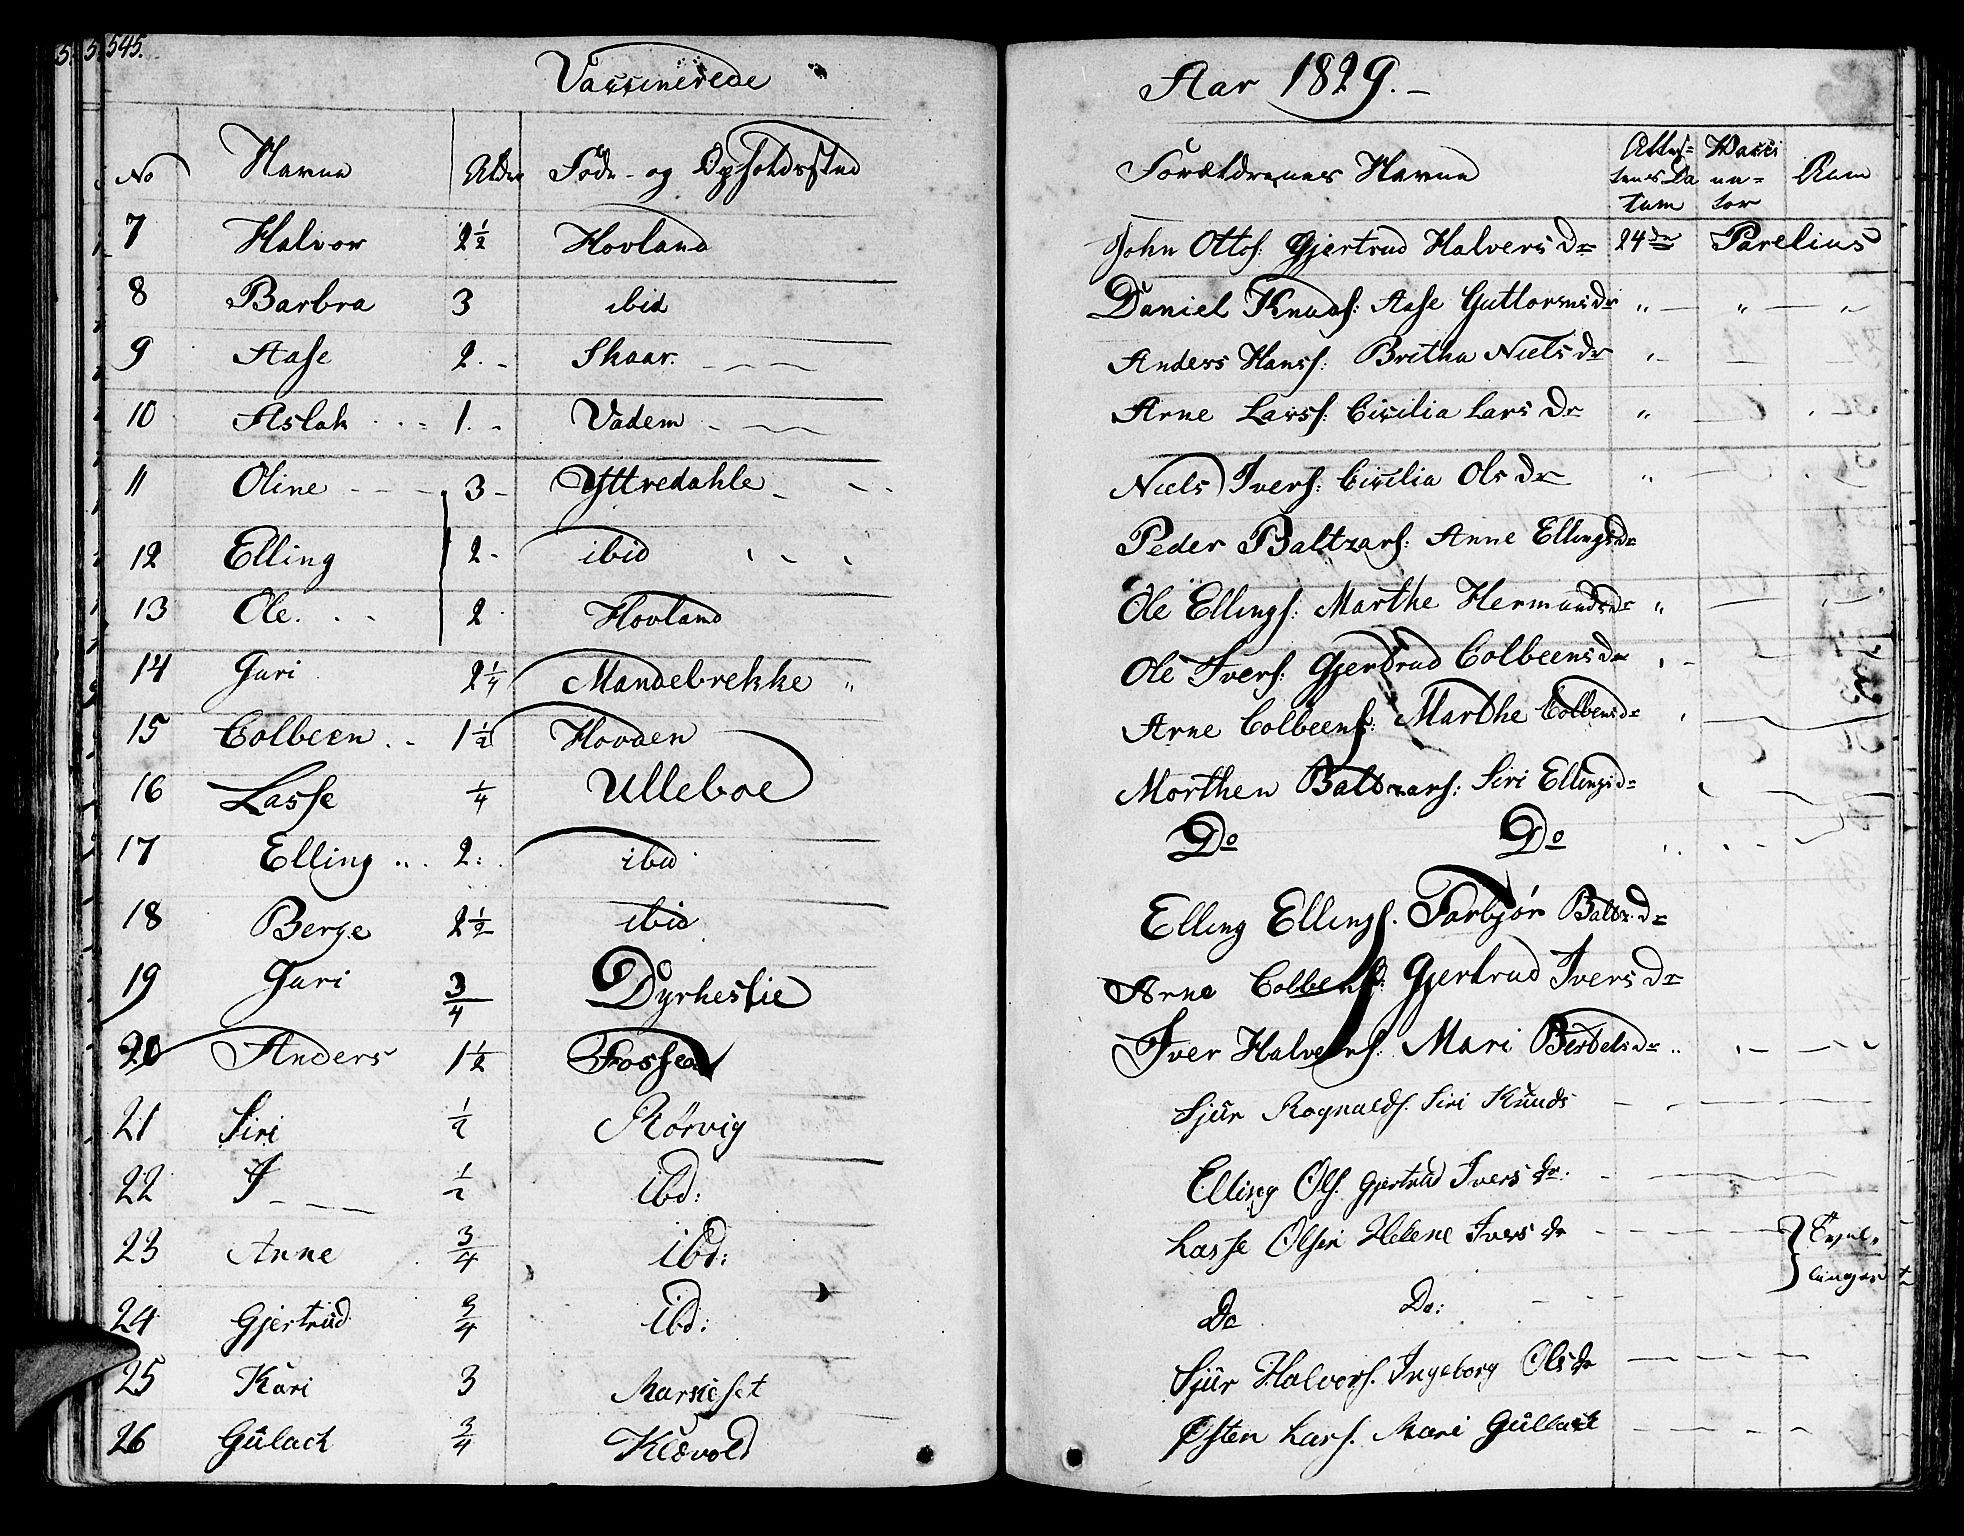 545.
Vaccinerede Aar 1829.
No Navne Alder Føde- og Opholdssted Forældrenes Navne Attestenes Datum Vaccinator Anm
7 Halvor 2½ Hovland John Ottos: Gjertrud Halversdr 24de Parelius
8 Barbra 3 ibid Daniel Knuds: Aase Guttormsdr " " "
9 Aase 2. Skaar Anders Hans: Britha Nielsdr "
10 Aslak 1. Vadem Arne Lars: Cicilia Larsdr "
11 Oline 3 Yttredahle Niels Ivers: Cicilia Olsdr "
12 Elling 2 ibid Peder Baltzars: Anne Ellingsdr
13 Ole 2 Hovland Ole Ellings: Marthe Hermundsdr "
14 Guri 2¼ Mandebrekke Ole Ivers: Gjertrud Colbeensdr
15 Colbeen 1½ Hovden Arne Colbeens: Marthe Colbensdr
16 Lasse ¼ Ulleboe Morthen Baltzars: Siri Ellingsdr
17 Elling 2 ibid Do Do
18 Berge 2½ ibid Elling Ellings. Torbjør Baltz.dr
19 Guri ¾ Dyrhestie Arne Colbens: Gjertrud Iversdr
20 Anders 1½ Fossen Iver Halvers: Mari Bertelsdr
21 Siri ½ Rørvig Sjur Rognalds. Siri Knuds
22 I ½ ibd: Elling Ols. Gjertrud Ivers dr.
23 Anne ¾ ibd: Lasse Olsen Helene Ivers dr } Tvillinger
24 Gjertrud ¾ ibd: Do Do:
25 Kari 3 Marsieset Sjur Halvors. Ingeborg Olsdr
26 Gulack ¾ Klævold Østen Lars. Mari Gullack